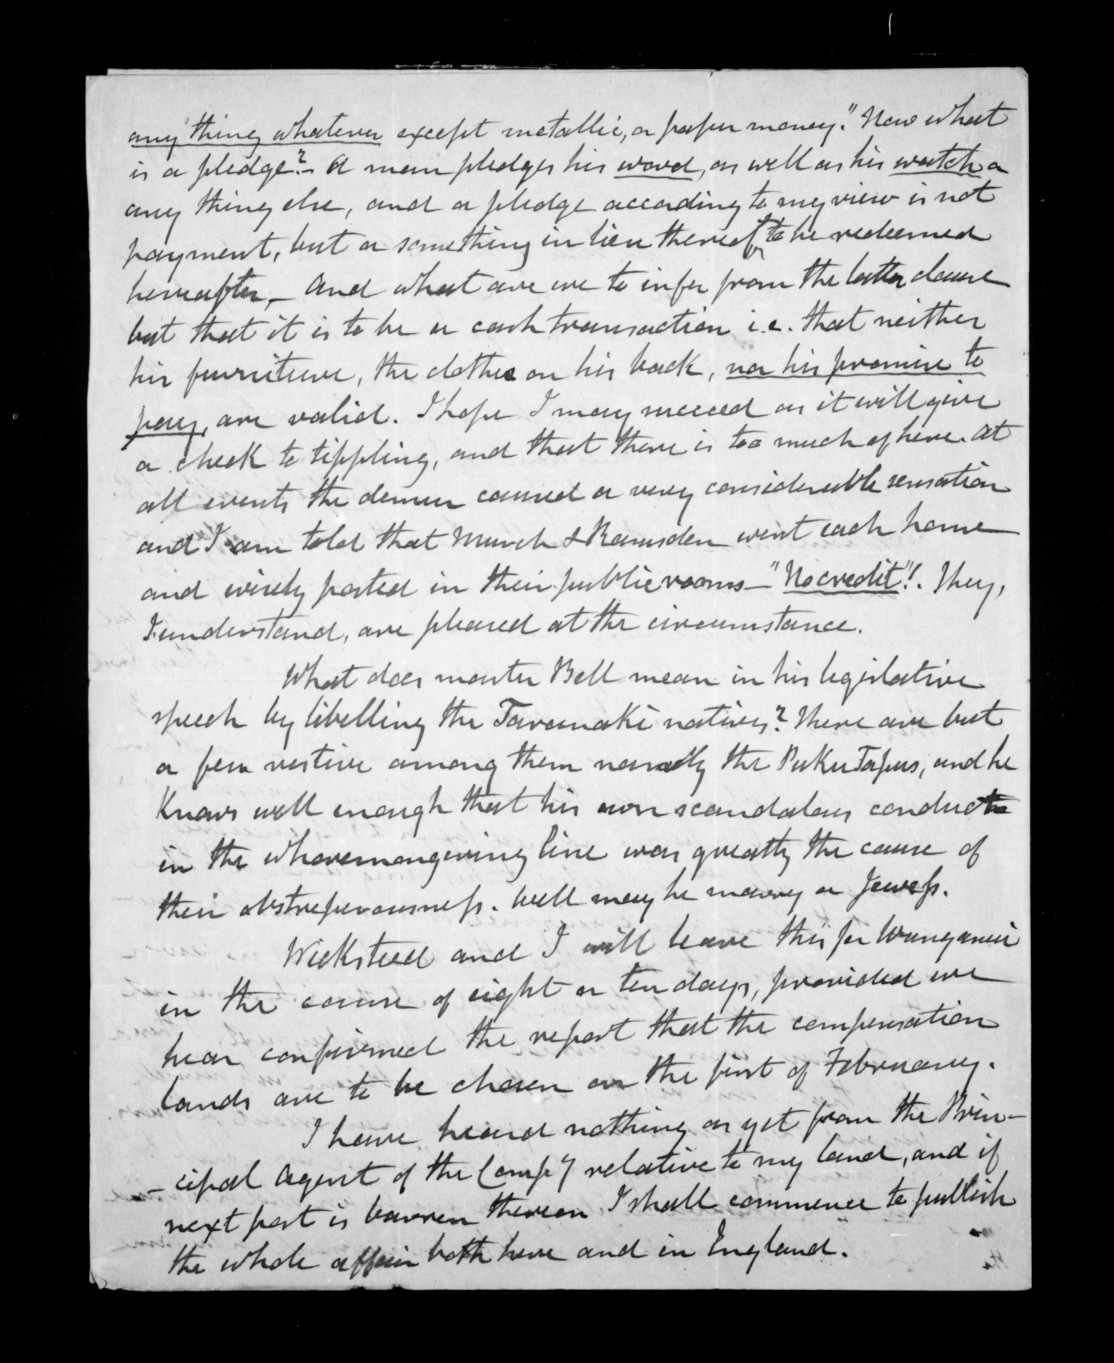 any thing whatever except metallic, or paper money." Now what
is a pledge?- A man pledges his word, as well as his watch or
any thing else, and a pledge according to my view is not
payment, but a something in lieu thereof, to be redeemed
hereafter,- And what are we to infer from the latter clause
but that it is to be a cash transaction i.e. that neither
his furniture, the clothes on his back, nor his promise to
pay, are valid. I hope I may succeed as it will give
a check to tippling, and that there is too much of here. At
all events the demur caused a very considerable sensation
and I am told that Murch & Ramsden went each home
and wisely posted in their public rooms - "No credit"!. They,
I understand, are pleased at the circumstance.
What does master Bell mean in his legislative
speech by libelling the Taranaki natives? There are but
a few restive among them namely the Puke Tapus, and he
knows well enough that his own scandalous conduct
in the whoremongering line was greatly the cause of
their obstreperousness. Well may he marry a Jewess.
Wicksteed and I will leave this for Wanganui
in the course of eight or ten days, provided we
hear confirmed the report that the compensation
lands are to be chosen on the first of February.
I have heard nothing as yet from the Prin-
-cipal Agent of the Compy relative to my land, and if
next post is barren thereon I shall commence to publish
the whole affair both here and in England.